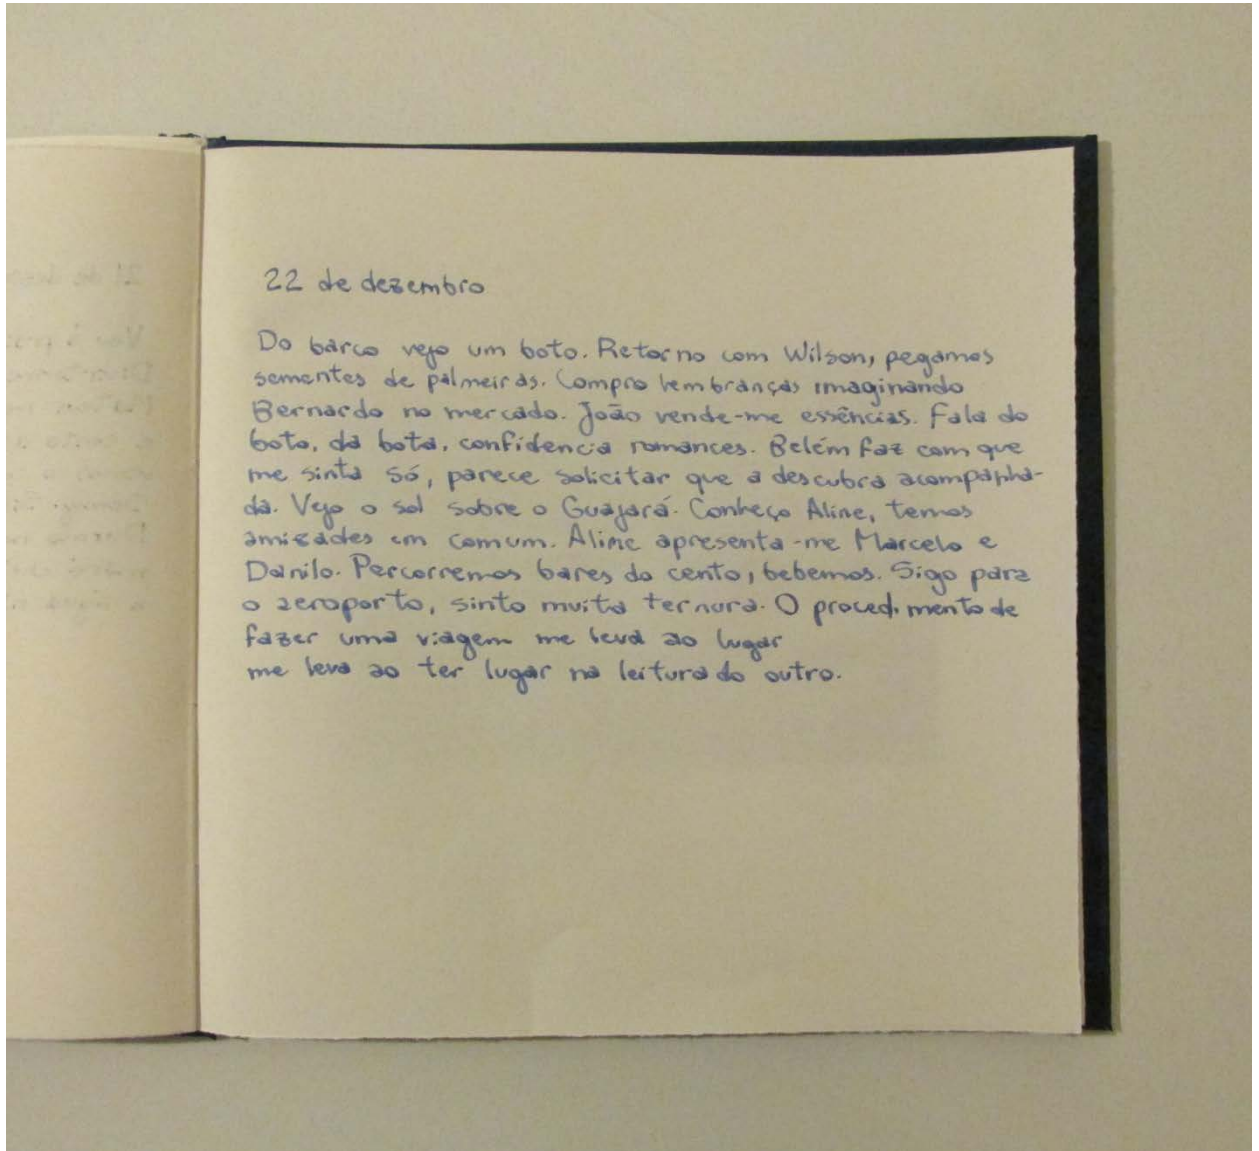 22 de dezembro
Do barco vejo um boto. Retorno com Wilson, pegamos
sementes de palmeiras. Compro lembranças imaginando
Bernardo no mercado. João vende-me essências. Fala do
boto, da bota, confidencia romances. Belém faz com que
me sinta só, parece solicitar que a descubra acompanha-
da. Vejo o sol sobre o Guajará. Conheço Aline, temos
amizades em comum. Aline apresenta-me Marcelo e
Danilo. Percorremos bares do cento, bebemos. Sigo para
o aeroporto, sinto muita ternura. O procedimento de
fazer uma viagem me leva ao lugar
me leva ao ter lugar na leitura do outro.